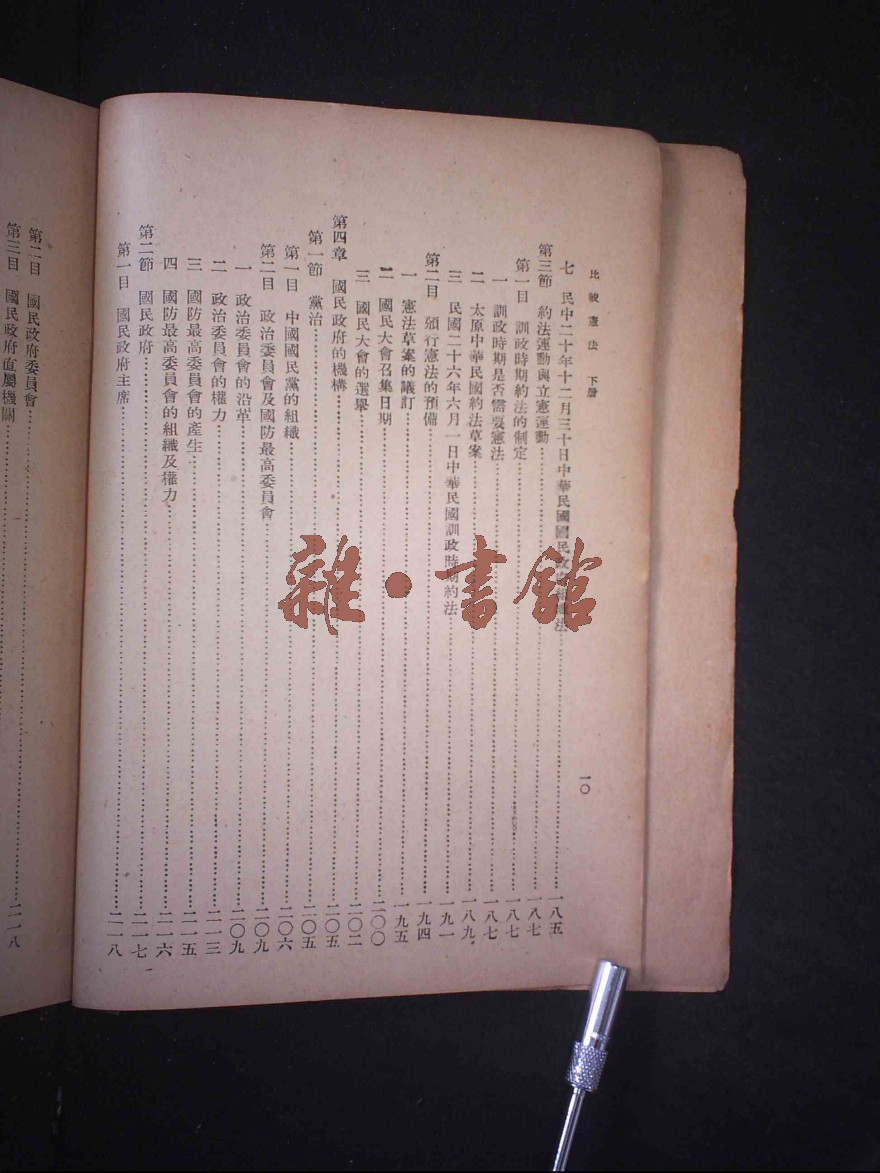 比較憲法 下册
一〇
七 民中二十年十二月三十日中華民國國民政府組織法……一八五
第三節 約法運動與立憲運動……一八七
第一目 訓政時期約法的制定……一八七
一 訓政時期是否需要憲法……一八七
二 太原中華民國約法草案……一八九
三 民國二十六年六月一日中華民國訓政時期約法……一九一
第二目 頒行憲法的預備……一九四
一 憲法草案的議訂……一九五
二 國民大會召集日期……二〇〇
三 國民大會的選舉……二〇二
第四章 國民政府的機構……二〇五
第一節 黨治……二〇五
第一目 中國國民黨的組織……二〇六
第二目 政治委員會及國防最高委員會……二〇九
一 政治委員會的沿革……二〇九
二 政治委員會的權力……二一三
三 國防最高委員會的產生……二一五
四 國防最高委員會的組織及權力……二一六
第二節 國民政府……二一七
第一目 國民政府主席……二一八
第二目 國民政府委員會……二一八
第三目 國民政府直屬機關……
雜·書館